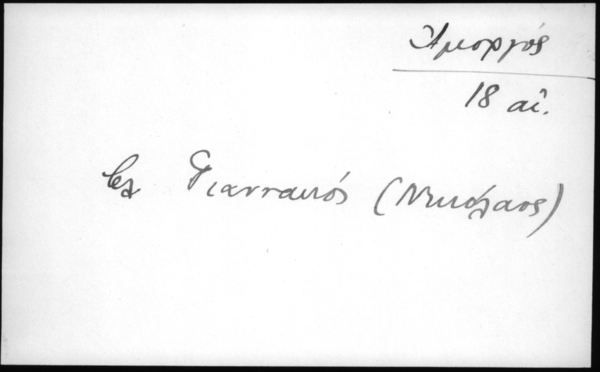 Ἀμοργός
18 αἰ.
βλ Γιαννακός (Νικόλαος)